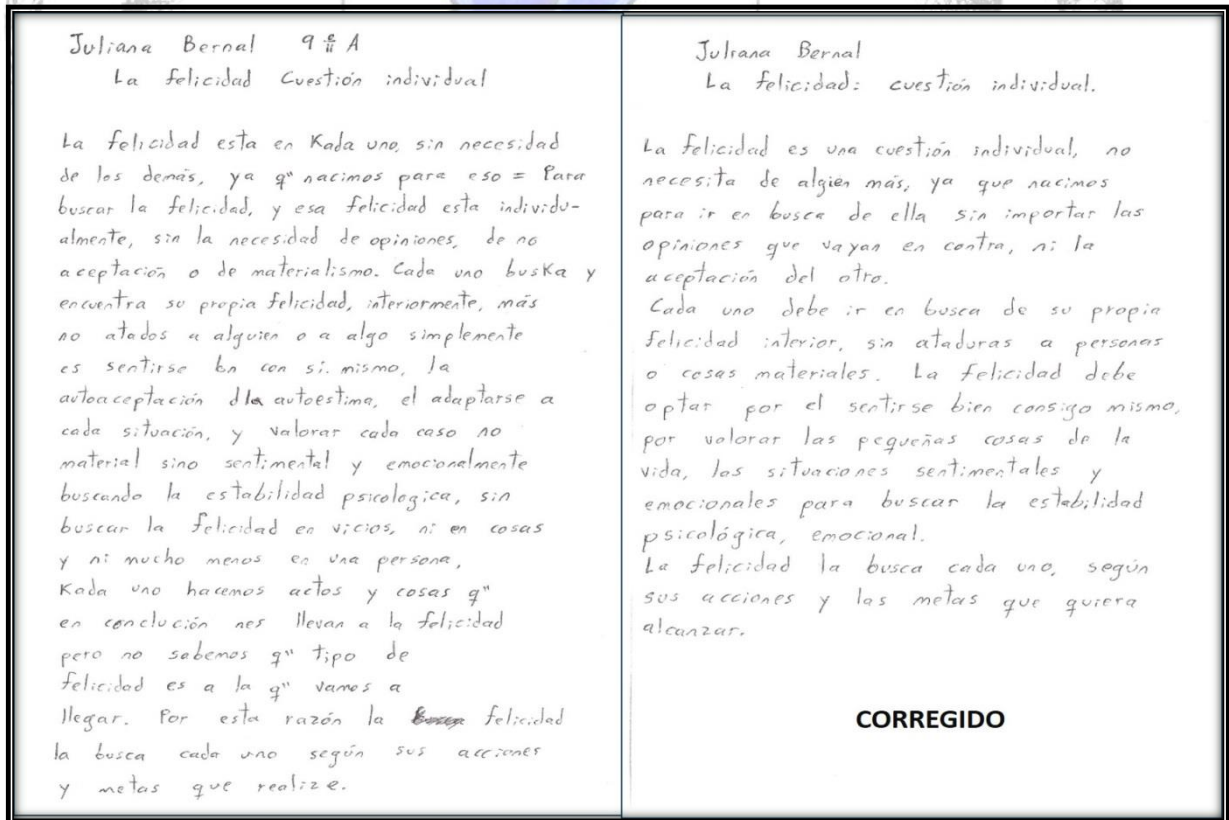 Juliana Bernal 9 e A
La felicidad Cuestión individual
La felicidad esta en Kada uno, sin necesidad
de los demás, ya q" nacimos para eso = Para
buscar la felicidad, y esa felicidad esta individu-
almente, sin la necesidad de opiniones, de no
aceptación o de materialismo. Cada uno busKa y
encuentra su propia felicidad, interiormente, más
no atados a alguien o a algo simplemente
es sentirse bn con si. mismo, la
autoaceptación dla autoestima, el adaptarse a
cada situación, y valorar cada caso no
material sino sentimental y emocionalmente
buscando la estabilidad psicologica, sin
buscar la felicidad en vicios, ni en cosas
y ni mucho menos en una persona,
Kada uno hacemos actos y cosas q"
en conclución nos llevan a la felicidad
pero no sabemos q" tipo de
felicidad es a la q" vamos a
llegar. Por esta razón la felicidad
la busca cada uno según sus acciones
y metas que realize.
Juliana Bernal
La felicidad: cuestión individual.
La felicidad es una cuestión individual, no
necesita de algien más, ya que nacimos
para ir en busca de ella sin importar las
opiniones que vayan en contra, ni la
aceptación del otro.
Cada uno debe ir en busca de su propia
felicidad interior, sin ataduras a personas
o cosas materiales. La felicidad debe
optar por el sentirse bien consigo mismo,
por valorar las pequeñas cosas de la
vida, las situaciones sentimentales y
emocionales para buscar la estabilidad
psicológica, emocional.
La felicidad la busca cada uno, según
sus acciones y las metas que quiera
alcanzar.
CORREGIDO